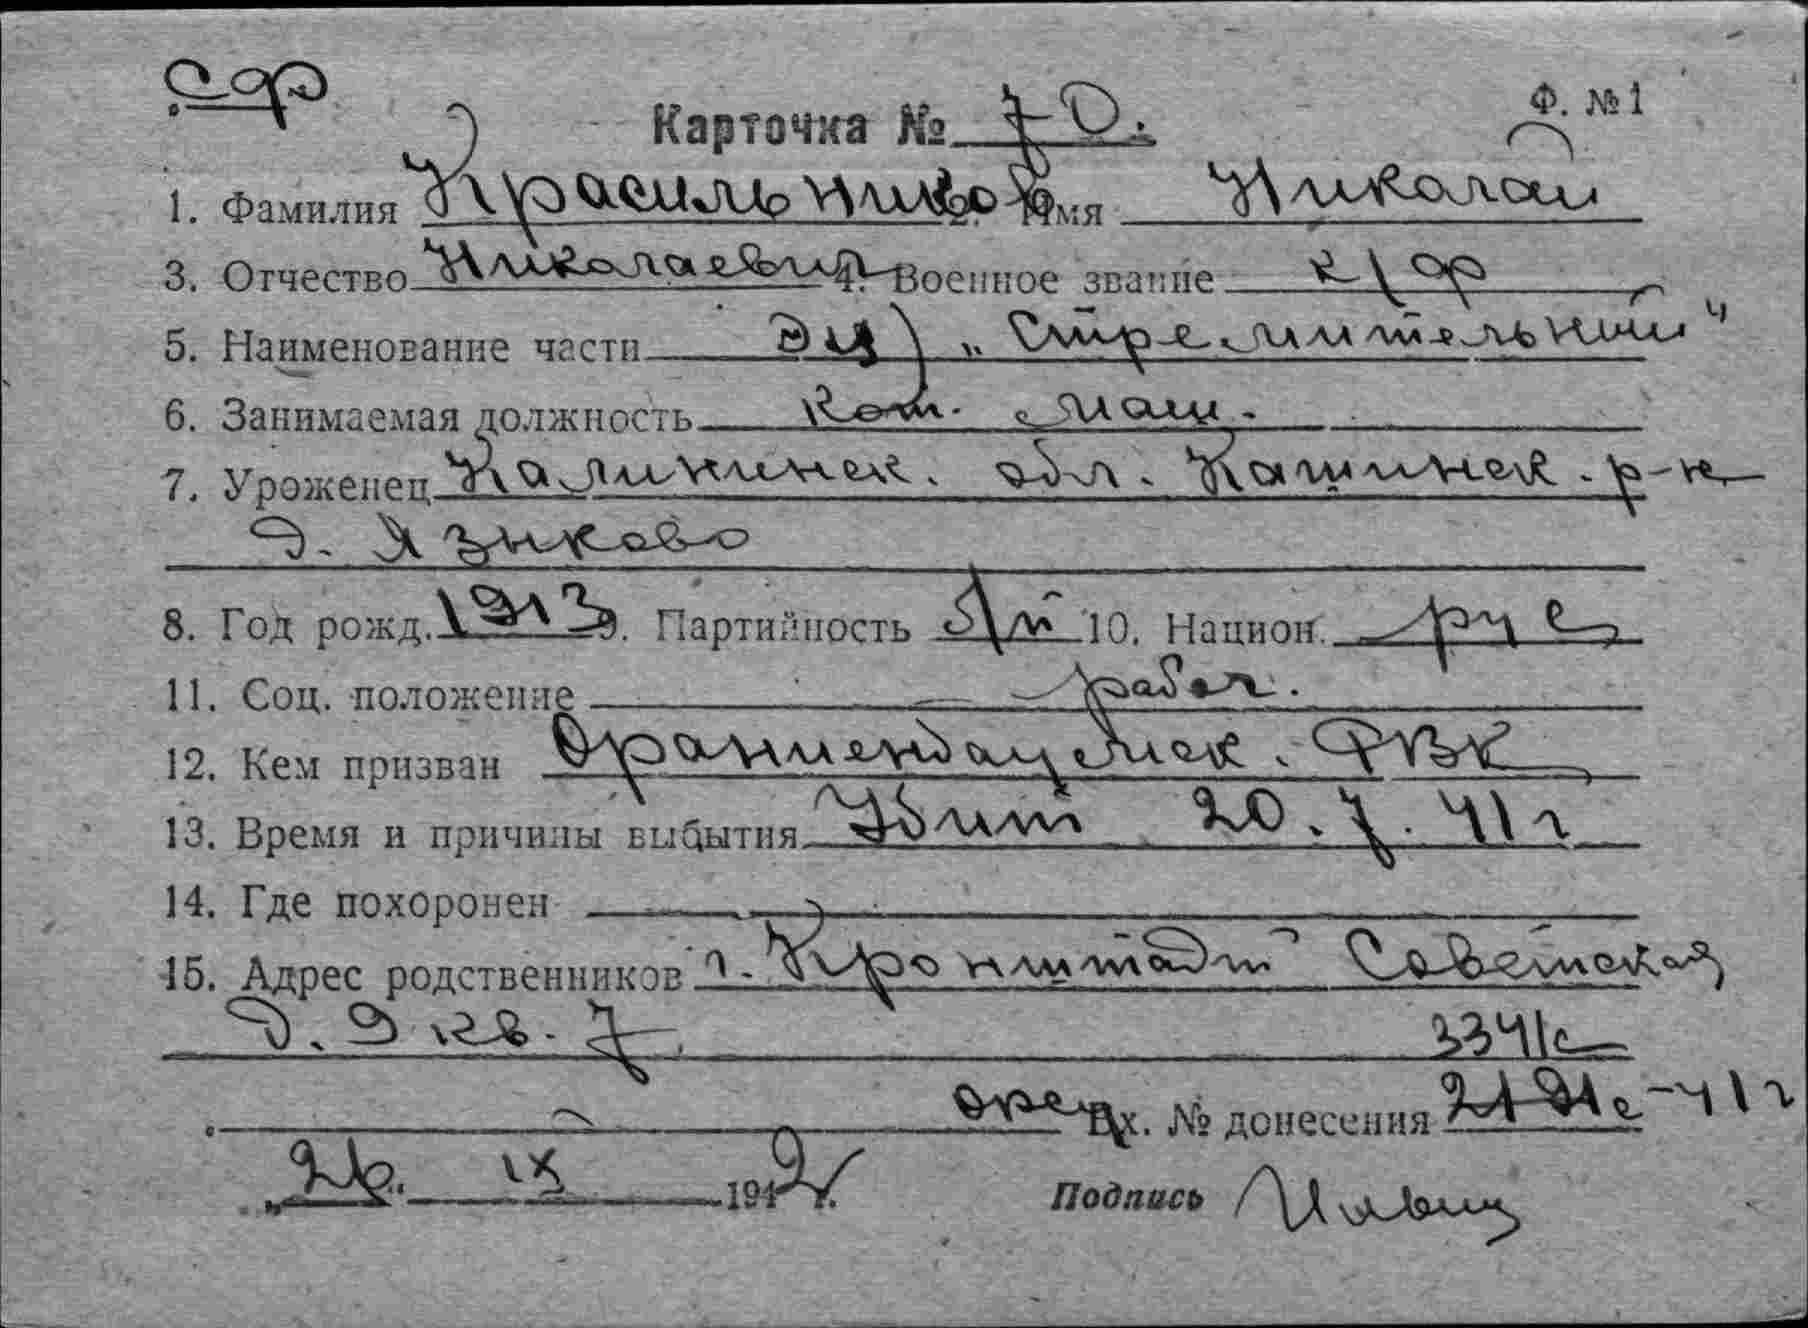 СФ
Ф. №1
Карточка № 70.
1. Фамилия Красильников 2. Имя Николай
3. Отчество Николаевич 4. Военное звание к/ф
5. Наименование части э/м „Стремительный"
6. Занимаемая должность кот. маш.
7. Уроженец Калининск. обл. Кашинск. р-н
д. Языково
8. Год рожд. 1913 9. Партийность б/п 10. Национ. рус
11. Соц. положение рабоч.
12. Кем призван Ораниенбаумск. РВК
13. Время и причины выбытия Убит 20.7.41 г
14. Где похоронен
15. Адрес родственников г. Кронштадт Советская
д. 9 кв. 7
3341с
Вх. № донесения 2191с-41г
„26." IX 1942 г.
Подпись